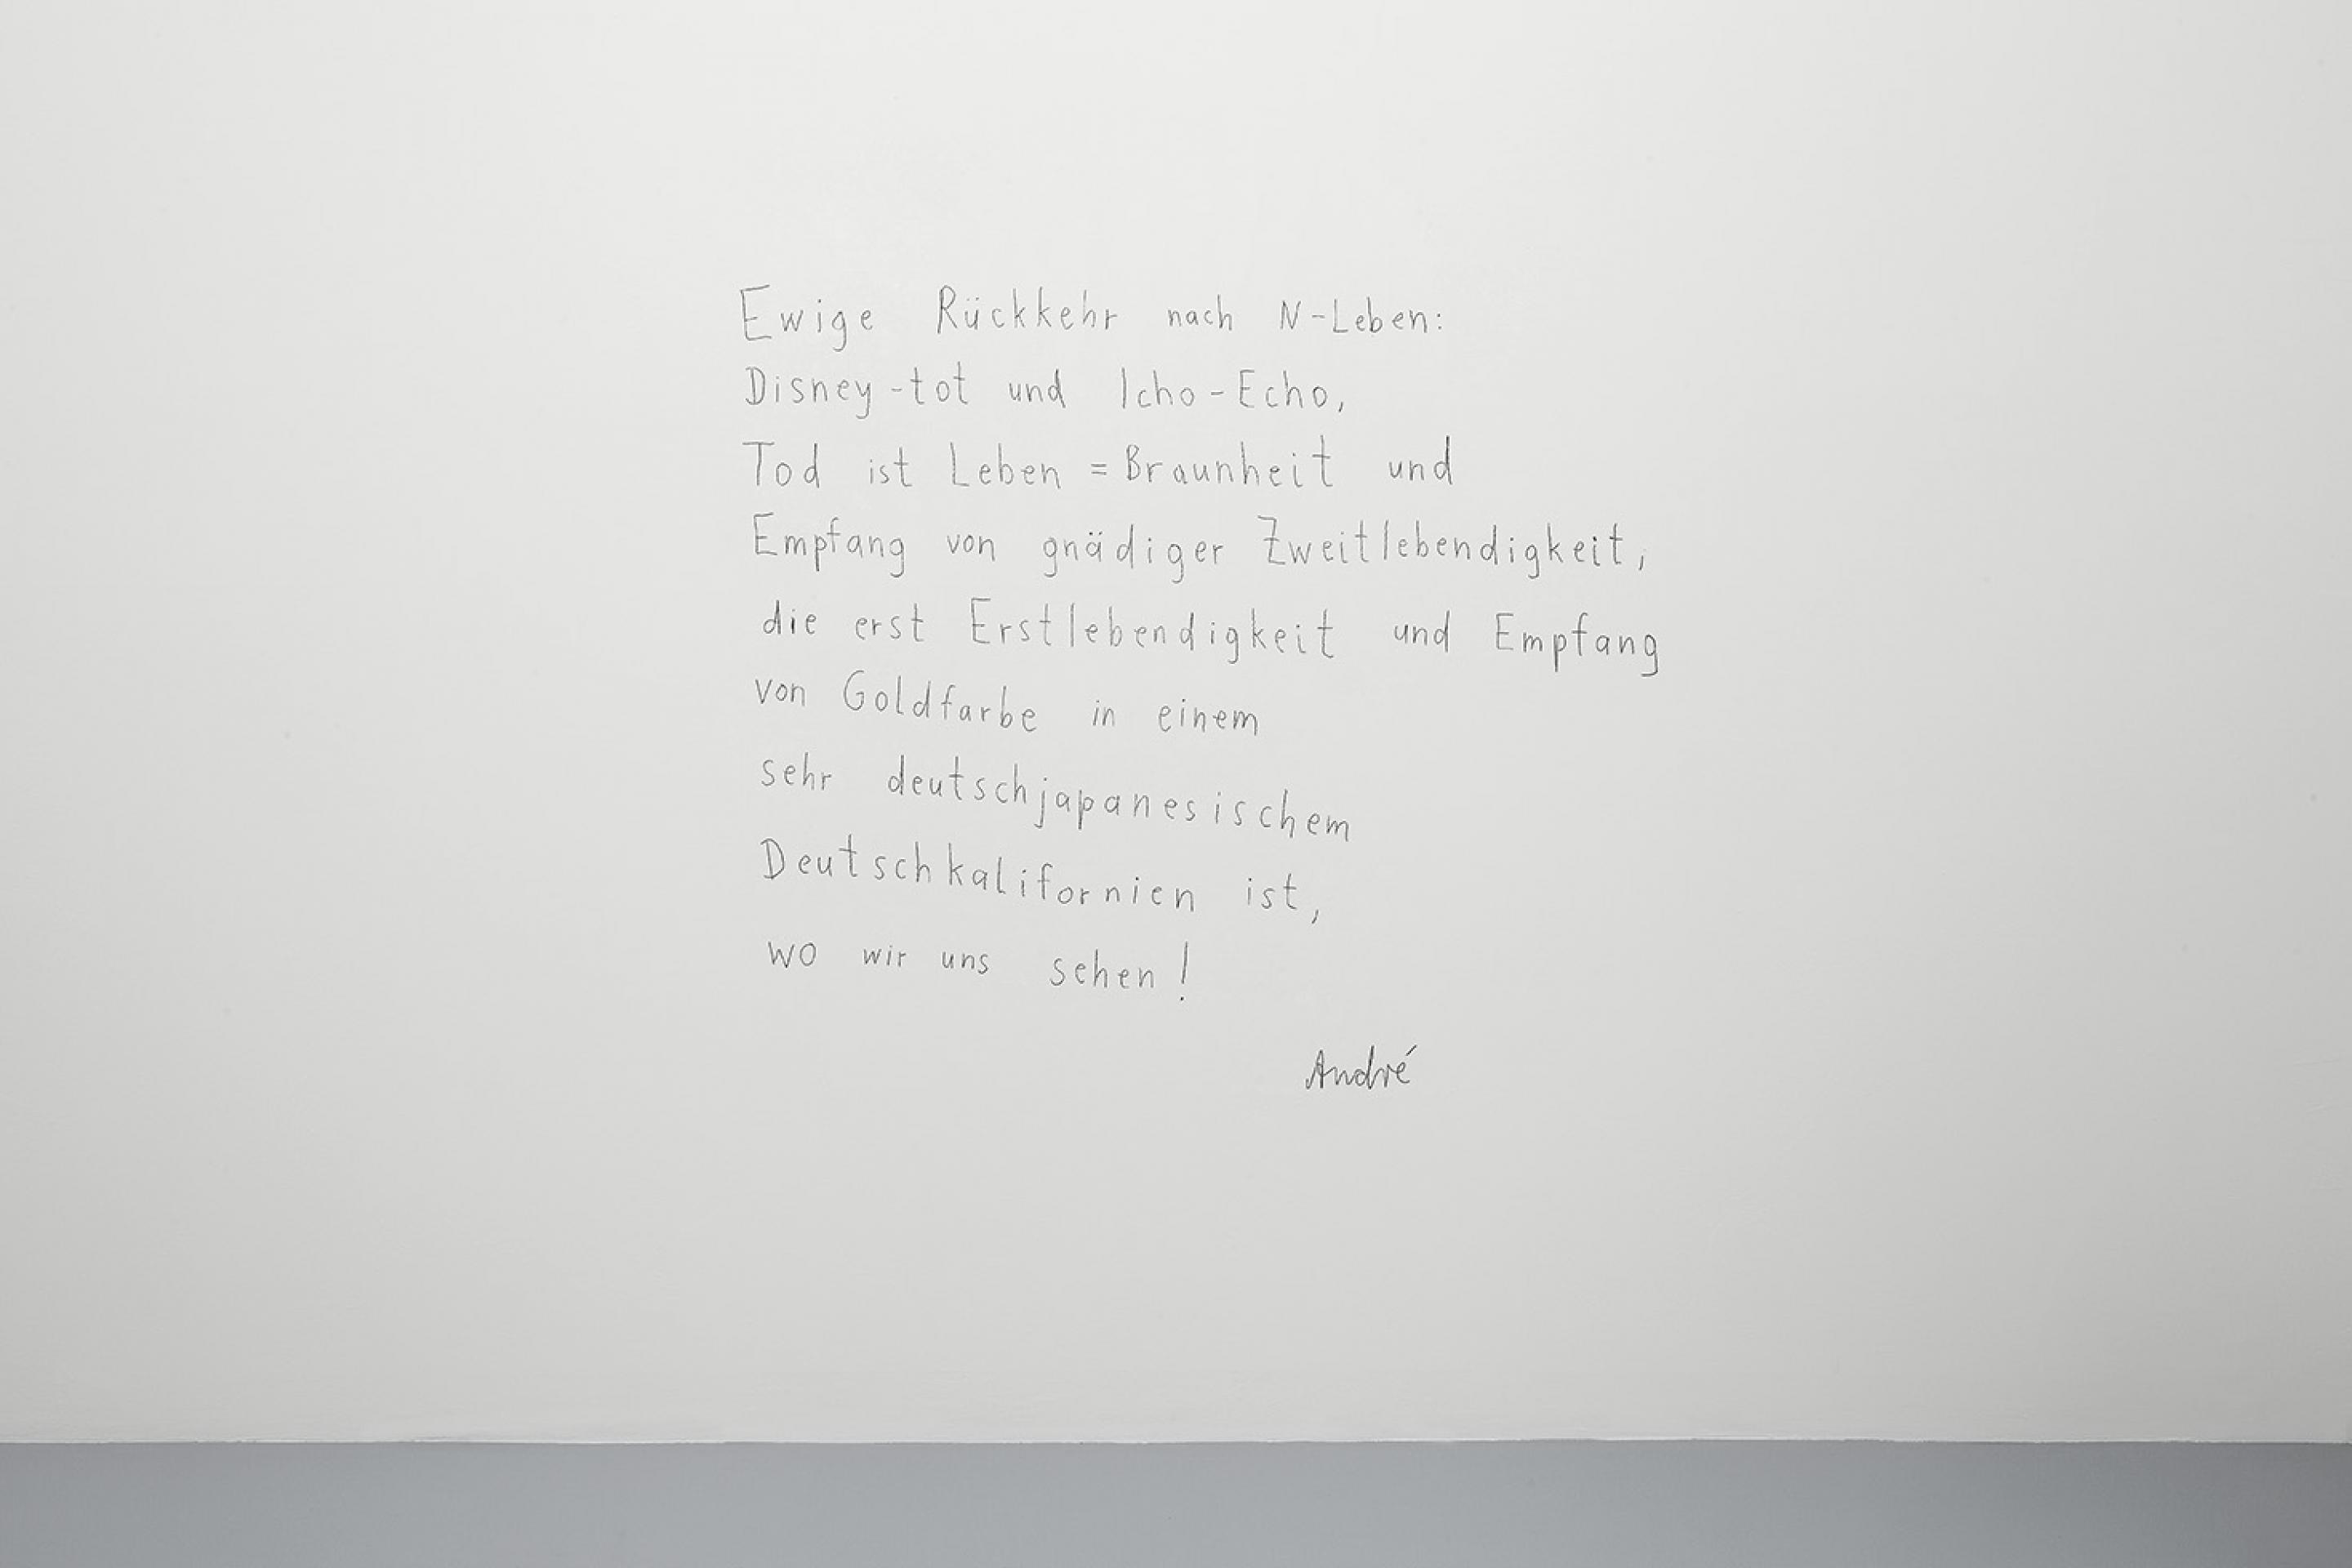 Ewige Rückkehr nach N-Leben:
Disney-tot und Icho-Echo,
Tod ist Leben = Braunheit und
Empfang von gnädiger Zweitlebendigkeit,
die erst Erstlebendigkeit und Empfang
von Goldfarbe in einem
sehr deutschjapanesischem
Deutschkalifornien ist,
wo wir uns sehen!
André